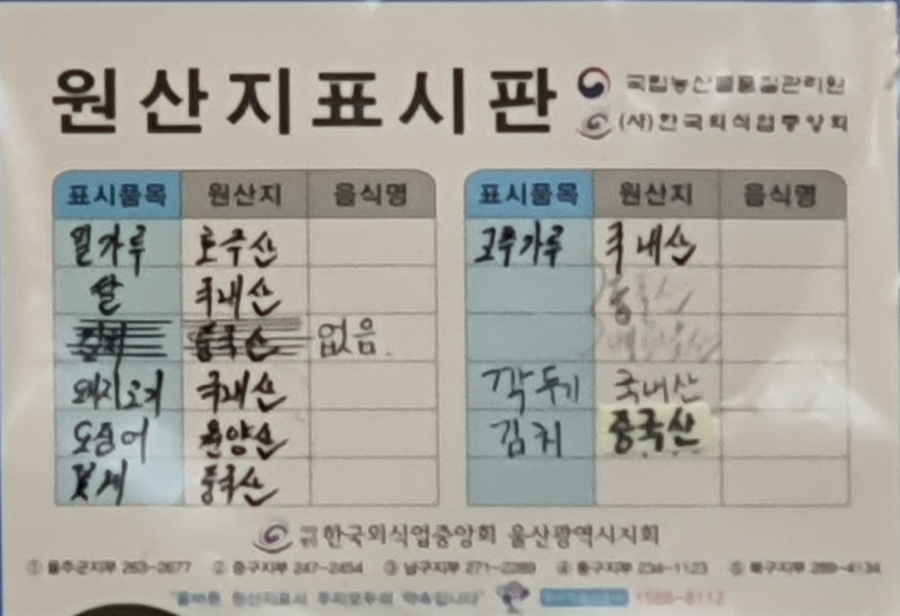 원산지표시판
국립농산물품질관리원
(사)한국외식업중앙회
표시품목 원산지 음식명
밀가루 호주산
쌀 국내산
김치 중국산 없음.
돼지고기 국내산
오징어 원양산
꽃게 중국산
표시품목 원산지 음식명
고추가루 국내산
깍두기 국내산
김치 중국산
한국외식업중앙회 울산광역시지회
① 울주군지부 263-2677 ② 중구지부 247-2454 ③ 남구지부 271-2289 ④ 동구지부 234-1123 ⑤ 북구지부 289-4134
"올바른 원산지표시 우리모두의 약속입니다"
1588-8112